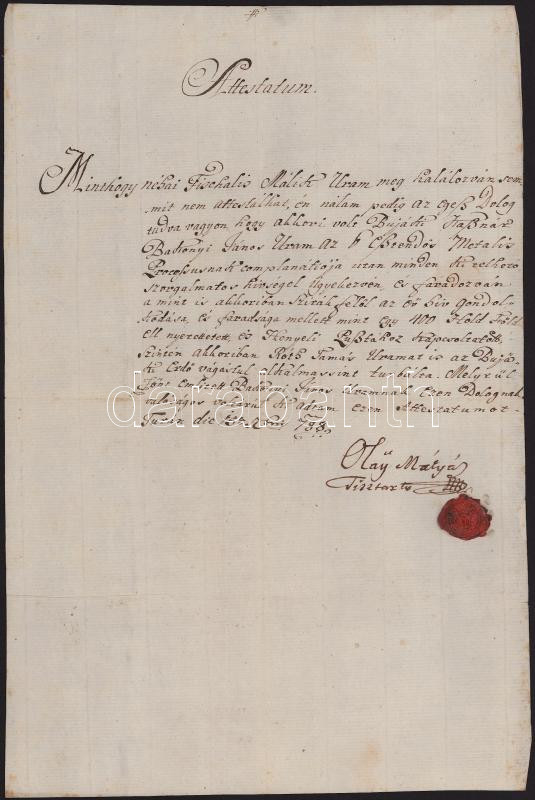 Attestatum.
Minthogy néhai Fischalis Málik Uram meg halálozván sem
mit nem attestálhat, én nálam pedig az egesz Dolog
tudva vagyon hogy akkori volt Bujáki
Baktonyi János Uram az Esztendős Metalis
Processusnak complanatioja után minden ki telhető
szorgalmatos hivségel ügyekezvén, es faradozván
a mint is akkoriban felöl az eö hiv gondos
kodása, és faradsága mellett mint egy 400 Hold Föld
el nyerettetett, es Kenyeli Pusztahoz kapcsoltatott,
szintén akkoriban Tamás Uramat is az Bujá
ki Erdö vagástul alkalmassint turbálta. Melyrül
Fönt emlitett János Uramnak ezen Dolognak
valóságos voltárul ki adtam ezen Attestatumot
die 788.
Olaÿ Mátyás
Tisztartó
darabanth